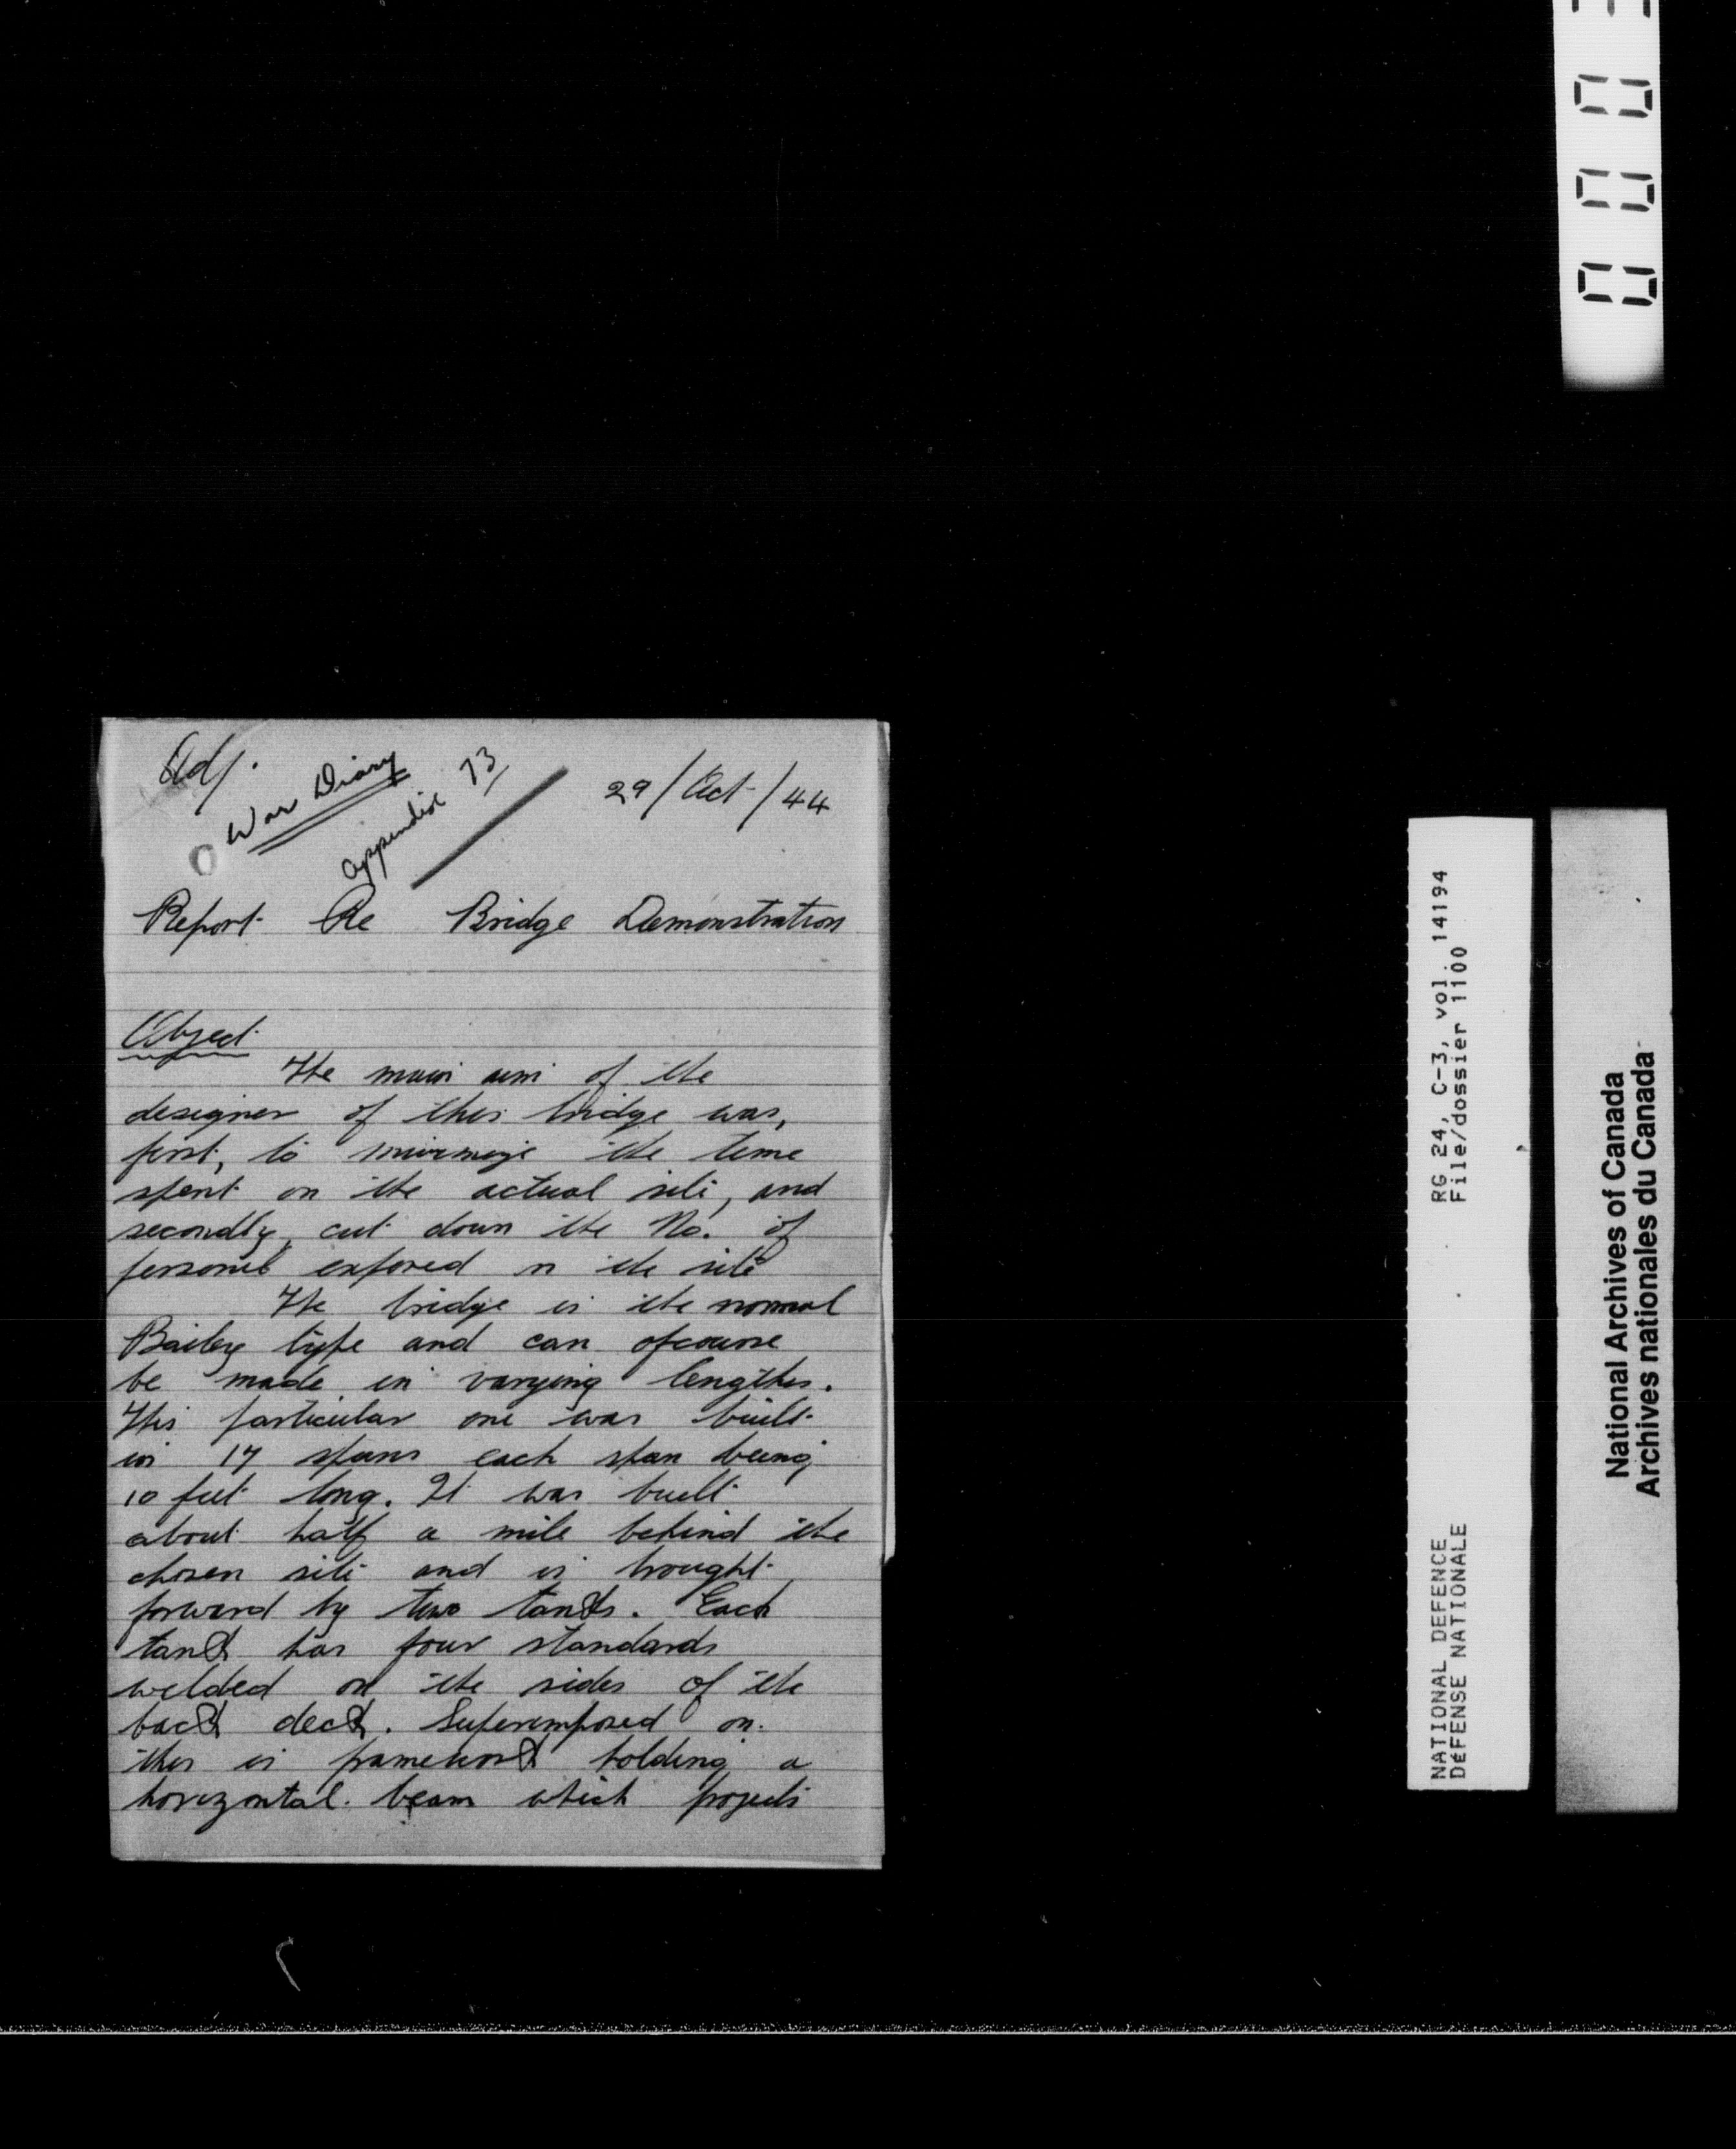 Adj.
War Diary
Appendix 13
29/Oct/44
Report Re Bridge Demonstration
Object
The main aim of the
designer of this bridge was,
first, to minimize the time
spent on the actual site, and
secondly, cut down the No. of
personel exposed on the site
The bridge is the normal
Bailey type and can ofcourse
be made in varying lengths.
This particular one was built
in 17 spans each span being
10 feet long. It was built
about half a mile behind the
chosen site and is brought
forward by two tanks. Each
tank has four standards
welded on the sides of the
back deck. Superimposed on
this is framework holding a
horizontal beam which projects
RG 24, C-3, vol. 14194
File/dossier 1100
NATIONAL DEFENCE
DéFENSE NATIONALE
National Archives of Canada
Archives nationales du Canada
000